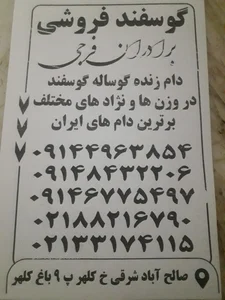 گوسفند فروشی
برادران فرجی
دام زنده گوساله گوسفند
در وزن ها و نژاد های مختلف
برترین دام های ایران
۰۹۱۴۴۹۶۳۸۵۴
۰۹۱۴۸۴۳۲۲۰۶
۰۹۱۴۶۷۷۵۴۹۷
۰۲۱۸۸۲۱۶۷۹۰
۰۲۱۳۳۱۷۴۱۱۵
صالح آباد شرقی خ کلهر پ ۹ باغ کلهر